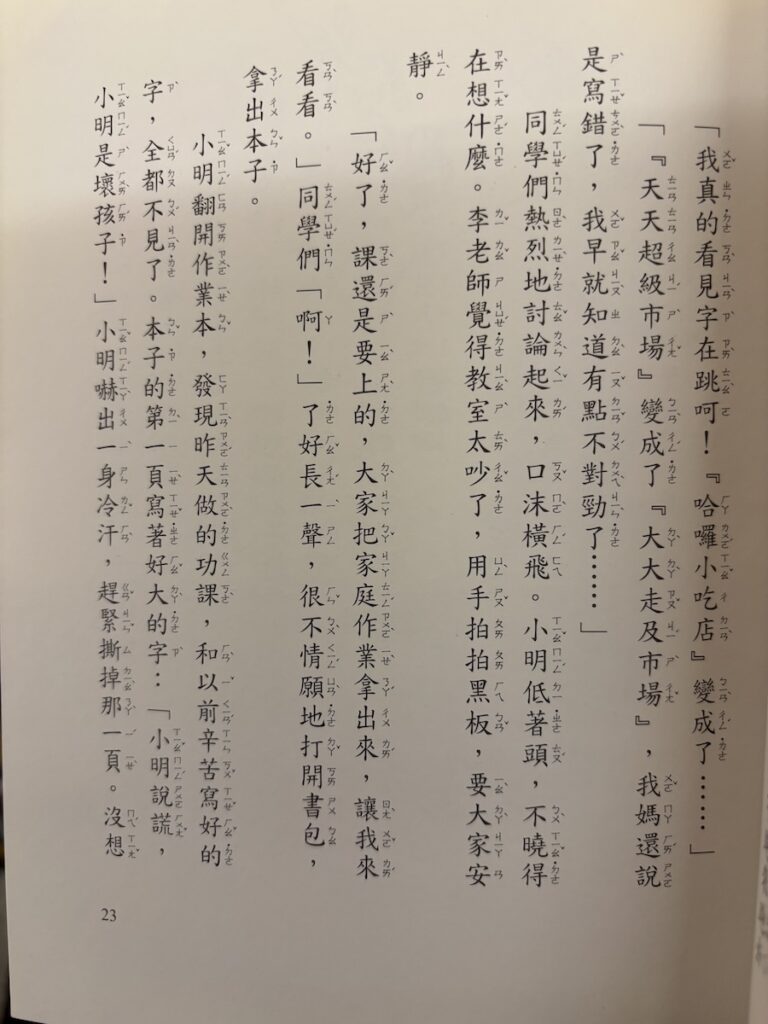 「我真的看見字在跳呵！『哈囉小吃店』變成了……」
「『天天超級市場』變成了『大大走及市場』，我媽還說
是寫錯了，我早就知道有點不對勁了……」
同學們熱烈地討論起來，口沫橫飛。小明低著頭，不曉得
在想什麼。李老師覺得教室太吵了，用手拍拍黑板，要大家安
靜。
「好了，課還是要上的，大家把家庭作業拿出來，讓我來
看看。」同學們「啊！」了好長一聲，很不情願地打開書包，
拿出本子。
小明翻開作業本，發現昨天做的功課，和以前辛苦寫好的
字，全都不見了。本子的第一頁寫著好大的字：「小明說謊，
小明是壞孩子！」小明嚇出一身冷汗，趕緊撕掉那一頁。沒想
23